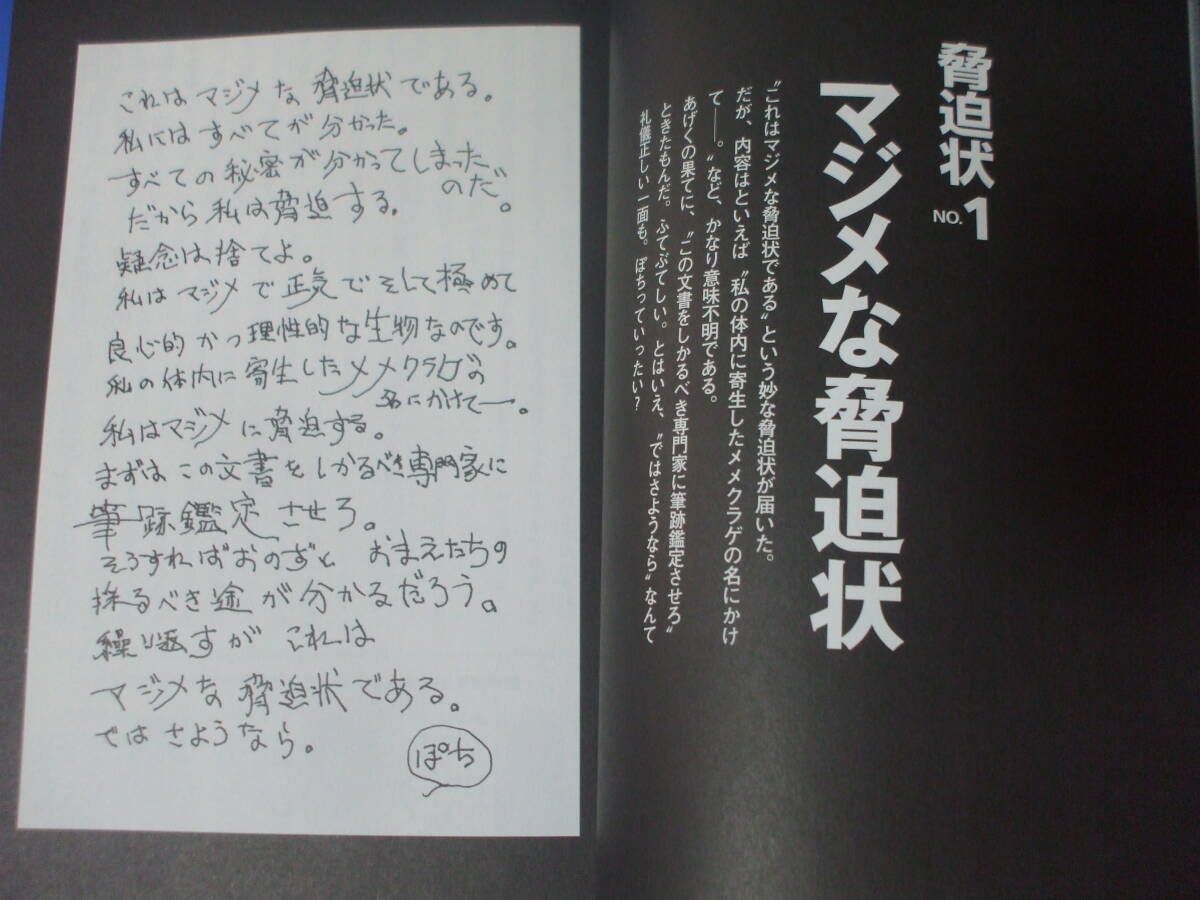 脅迫状
NO.1
マジメな脅迫状
“これはマジメな脅迫状である”という妙な脅迫状が届いた。
だが、内容はといえば“私の体内に寄生したメメクラゲの名にかけ
て――。”など、かなり意味不明である。
あげくの果てに、“この文書をしかるべき専門家に筆跡鑑定させろ”
ときたもんだ。ふてぶてしい。とはいえ、“ではさようなら”なんて
礼儀正しい一面も。ぽちっていったい?
これはマジメな脅迫状である。
私にはすべてが分かった。
すべての秘密が分かってしまった
のだ。
だから私は脅迫する。
疑念は捨てよ。
私はマジメで正気でそして極めて
良心的かつ理性的な生物なのです。
私の体内に寄生したメメクラゲの
名にかけて―。
私はマジメに脅迫する。
まずはこの文書をしかるべき専門家に
筆跡鑑定させろ。
そうすればおのずと おまえたちの
採るべき途が分かるだろう。
繰り返すが これは
マジメな脅迫状である。
ではさようなら。
ぽち